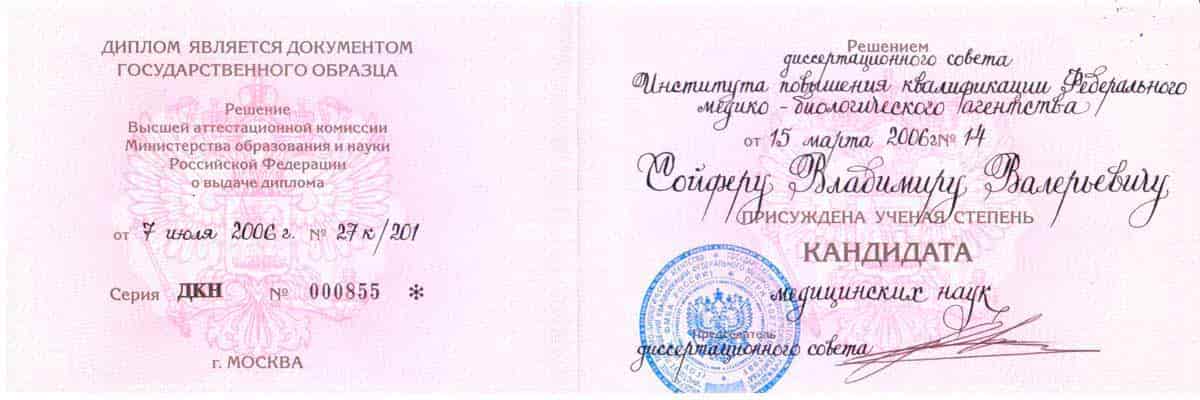 ДИПЛОМ ЯВЛЯЕТСЯ ДОКУМЕНТОМ
ГОСУДАРСТВЕННОГО ОБРАЗЦА
Решение
Высшей аттестационной комиссии
Министерства образования и науки
Российской Федерации
о выдаче диплома
от 7 июля 2006 г. № 27к/201
Серия ДКН № 000855 *
г. МОСКВА
Решением
диссертационного совета
Института повышения квалификации Федерального
медико-биологического агентства
от 15 марта 2006г № 14
Сойферу Владимиру Валерьевичу
ПРИСУЖДЕНА УЧЕНАЯ СТЕПЕНЬ
КАНДИДАТА
медицинских наук
Председатель
диссертационного совета